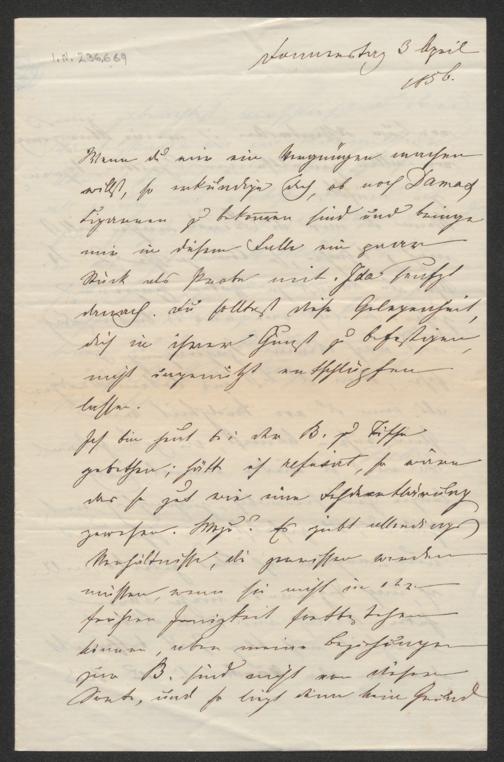 I.N. 236.669
Donnerstag 3 April
1856.
Wenn du mir ein Vergnügen machen
willst, so erkundige dich, ob noch Damas
Cigarren zu bekommen sind und bringe
mir in diesem Falle ein paar
Stück als Probe mit. Ida seufzt
darnach. Du solltest diese Gelegenheit,
dich in ihrer Gunst zu befestigen,
nicht ungenützt entschlüpfen
lassen.
Ich bin heut bei der B. zu Tische
gebethen; hätt ich refusirt, so wäre
das so gut wie eine Fehdeerklärung
gewesen. Wozu? Es giebt allerdings
Verhältnisse, die zerrissen werden
müssen, wenn sie nicht in der
frühern Innigkeit fortbestehen
können, aber meine Beziehungen
zur B. sind nicht von dieser
Sorte, und so liegt denn kein Grund